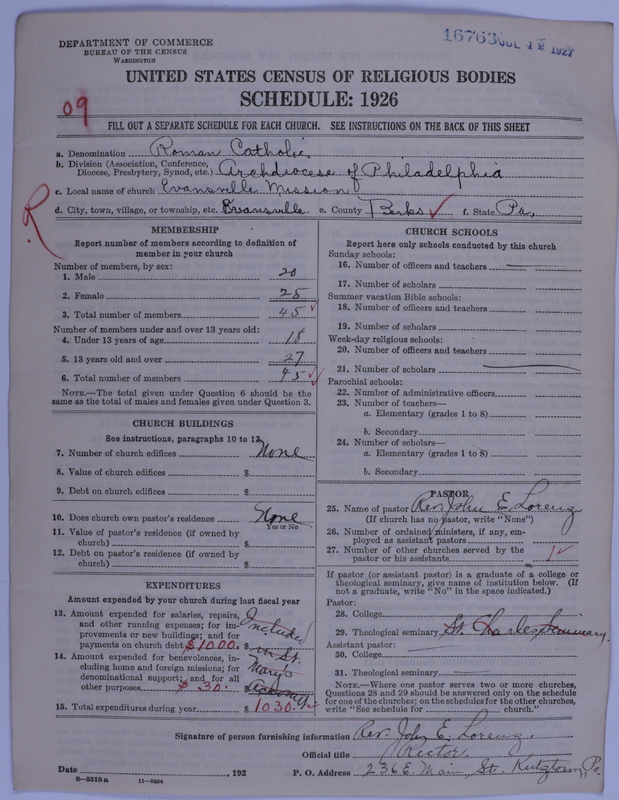 DEPARTMENT OF COMMERCE
BUREAU OF THE CENSUS
WASHINGTON
16763 JUL 12 1927
UNITED STATES CENSUS OF RELIGIOUS BODIES
SCHEDULE: 1926
09
FILL OUT A SEPARATE SCHEDULE FOR EACH CHURCH. SEE INSTRUCTIONS ON THE BACK OF THIS SHEET
a. Denomination Roman Catholic
b. Division (Association, Conference, Diocese, Presbytery, Synod, etc.) Archdiocese of Philadelphia
c. Local name of church Evansville Mission
d. City, town, village, or township, etc. Evansville e. County Berks f. State Pa.
R
MEMBERSHIP
Report number of members according to definition of
member in your church
Number of members, by sex:
1. Male 20
2. Female 25
3. Total number of members 45
Number of members under and over 13 years old:
4. Under 13 years of age 18
5. 13 years old and over 27
6. Total number of members 45
NOTE.—The total given under Question 6 should be
same as the total of males and females given under Question 3.
CHURCH BUILDINGS
See instructions, paragraphs 10 to 12
7. Number of church edifices None
8. Value of church edifices $
9. Debt on church edifices $
10. Does church own pastor's residence None
Yes or No
11. Value of pastor's residence (if owned by
church) $
12. Debt on pastor's residence (if owned by
church) $
EXPENDITURES
Amount expended by your church during last fiscal year
13. Amount expended for salaries, repairs,
and other running expenses; for im-
provements or new buildings; and for
payments on church debt $1000. $ Included in St.
14. Amount expended for benevolences, in-
cluding home and foreign missions; for
denominational support; and for all
other purposes $ 30. $ Mary's
15. Total expenditures during year $ 1030.
CHURCH SCHOOLS
Report here only schools conducted by this church
Sunday schools:
16. Number of officers and teachers
17. Number of scholars
Summer vacation Bible schools:
18. Number of officers and teachers
19. Number of scholars
Week-day religious schools:
20. Number of officers and teachers
21. Number of scholars
Parochial schools:
22. Number of administrative officers
23. Number of teachers—
a. Elementary (grades 1 to 8)
b. Secondary
24. Number of scholars—
a. Elementary (grades 1 to 8)
b. Secondary
PASTOR
25. Name of pastor Rev. John E. Lorenz
(If church has no pastor, write "None")
26. Number of ordained ministers, if any, em-
ployed as assistant pastors
27. Number of other churches served by the
pastor or his assistants 1
If pastor (or assistant pastor) is a graduate of a college or
theological seminary, give name of institution below. (If
not a graduate, write "No" in the space indicated.)
Pastor:
28. College
29. Theological seminary St. Charles Seminary.
Assistant pastor:
30. College
31. Theological seminary
NOTE.—Where one pastor serves two or more churches,
Questions 28 and 29 should be answered only on the schedule
for one of the churches; on the schedules for the other churches,
write "See schedule for church."
Signature of person furnishing information Rev. John E. Lorenz.
Official title Rector.
Date , 192 P. O. Address 236 E. Main St. Kutztown, Pa.
8—5518a 11—9664